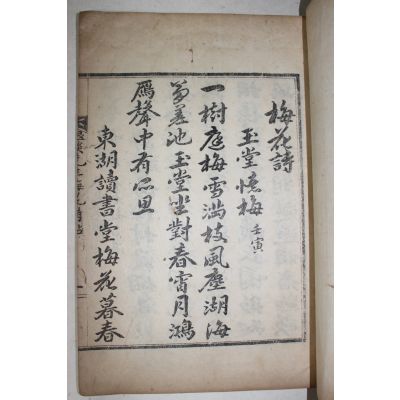 梅花詩
玉堂憶梅 壬寅
一樹庭梅雪滿枝風塵湖海
夢差池玉堂坐對春宵月鴻
鴈聲中有所思
東湖讀書堂梅花暮春